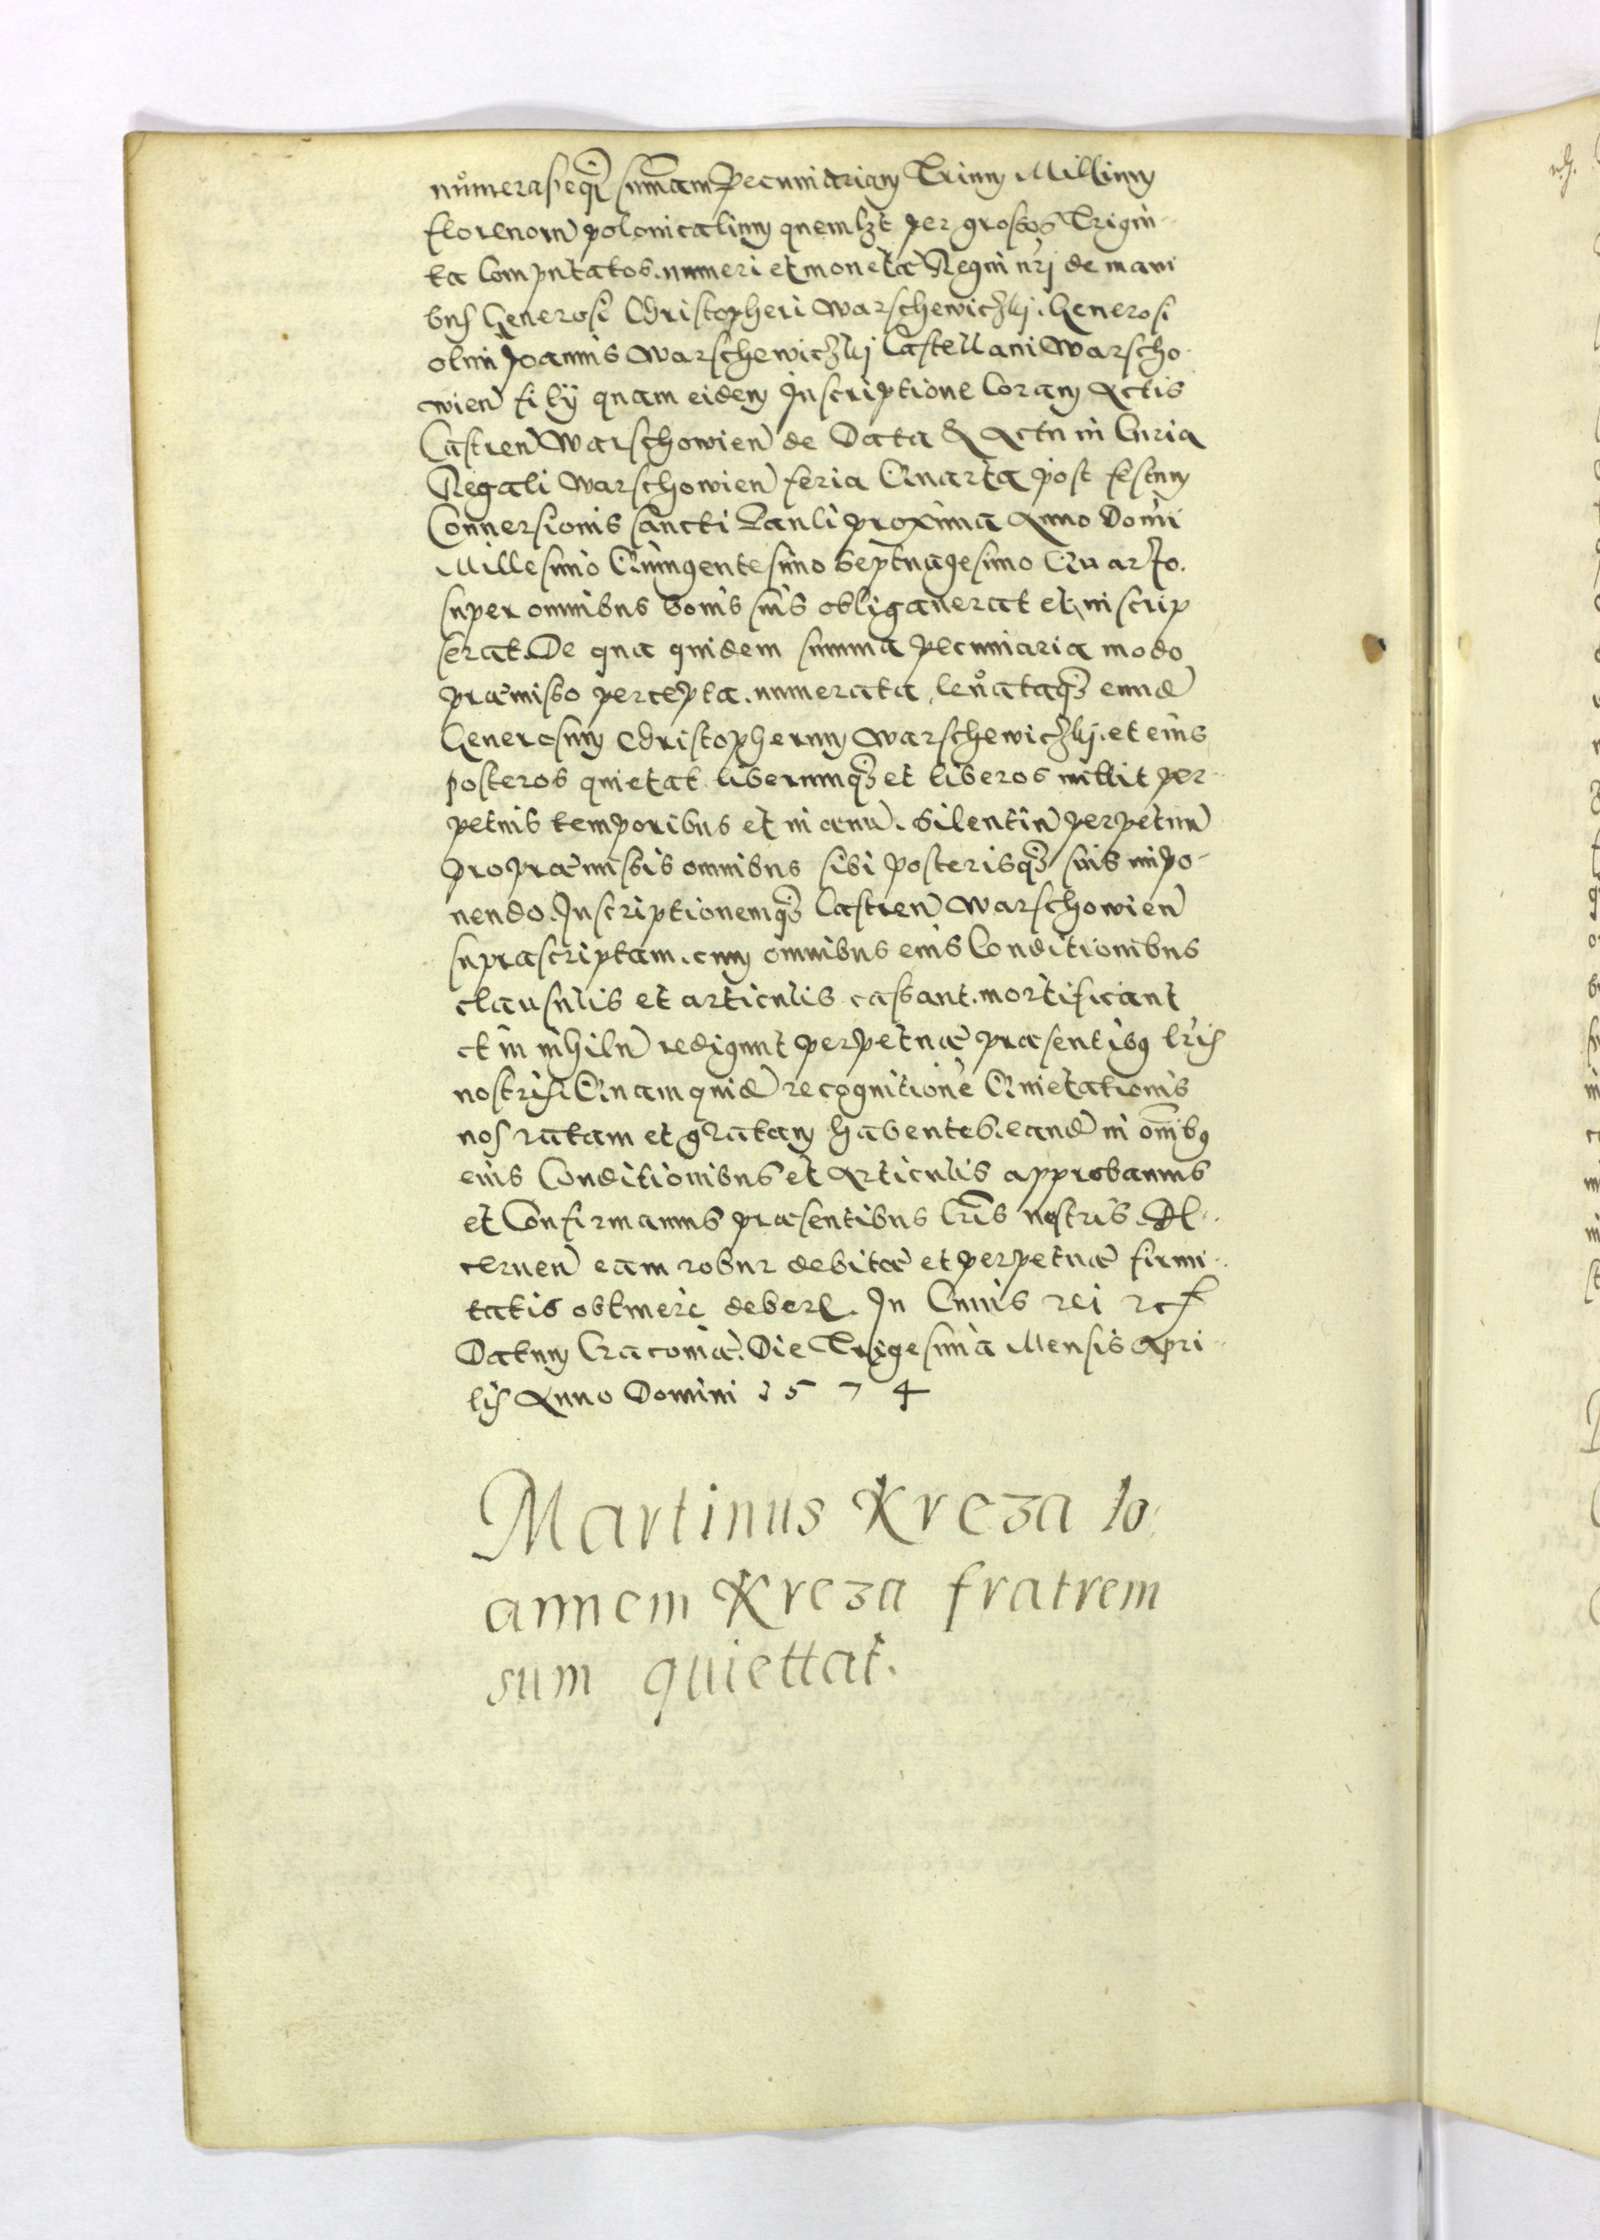 nůmerasseq₃ sum̃am pecuniariam Trium Millium
florenorũ polonicalium quemlz̃t per grossos Trigin-
ta Computatos. numeri et monetæ Regni nr̃j de mani
bus Generosi Christopheri Warschewiczkj. Generosi
olim Joannis Warschewiczkj Castellani Warscho-
wieñ filij quam eidem Inscriptione Coram Actis
Castreñ Warschowieñ de Data & Actu in Curia
Regali Warschowieñ feria Quarta post festum
Conuersionis sancti Pauli proxima Anno Domi
Millesimo Quingentesimo Septuagesimo Quarto.
super omnibus bonis suis obligauerat et inscrip
serat. De qua quidem summa pecuniaria modo
præmisso percepta. numerata, leuataq₃ eundẽ
Generosum Christopherum Warschewiczkj. et eius
posteros quietat liberumq₃ et liberos mittit per-
petuis temporibus et in æuũ. Silentiũ perpetuũ
pro præmissis omnibus sibi posterisq₃ suis impo-
nendo. Inscriptionemq₃ Castreñ Warschowieñ
suprascriptam. cum omnibus eius Conditionibus
clausulis et articulis cassant. mortificant
et in nihilũ redigunt perpetuæ præsentibus lr̃is
nostris. Quam quidẽ recognitionẽ Quietationis
nos ratam et gratam habentes. eandẽ in om̃ibus
eius Conditionibus et Articulis approbamus
et Confirmamus præsentibus lr̃is nostris. De-
cerneñ eam robur debitæ et perpetuæ firmi-
tatis obtinere debere. In Cuius rei rcƒ
Datum Cracouiæ. Die Trigesima Mensis Apri-
lis Anno Domini 1574
Martinus Kreza Io
annem Kreza fratrem
sum quiettat.